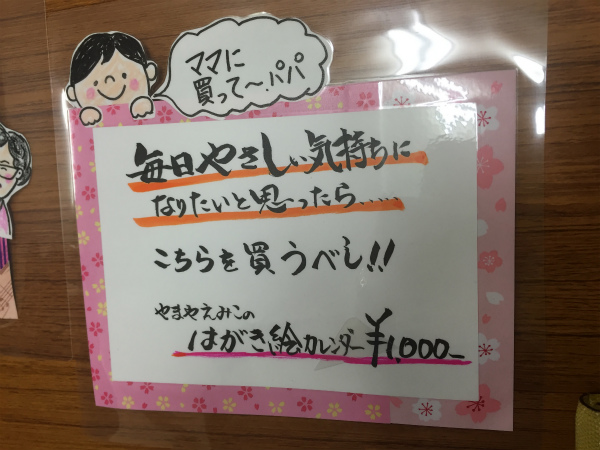 ママに
買って〜.パパ
毎日やさしい気持ちに
なりたいと思ったら......
こちらを買うべし!!
やまやえみこの
はがき絵カレンダー ¥1,000-